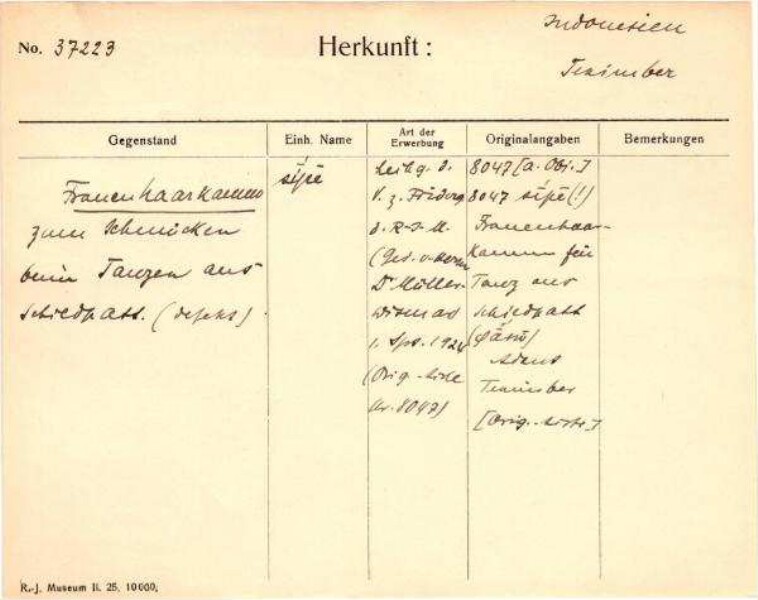 Indonesien
No. 37223 Herkunft:
Tanimber
Gegenstand
Einh. Name
Art der Erwerbung
Originalangaben
Bemerkungen
Frauenhaarkamm
zum Schmücken
beim Tanzen aus
Schildpatt. (defekt)
sípē
Leihg. d.
V. z. Förderg
d. R-J-M.
(Ges. v. Herrn
Dr Müller-
Wismar
(Orig.-Liste
Nr. 8047)
8047 [a. Obj.]
8047 sípē (!)
Frauenhaar-
kamm für
Tanz aus
Schildpatt
Tanimber
[Orig.-Liste]
R.-J. Museum II. 25. 10000.